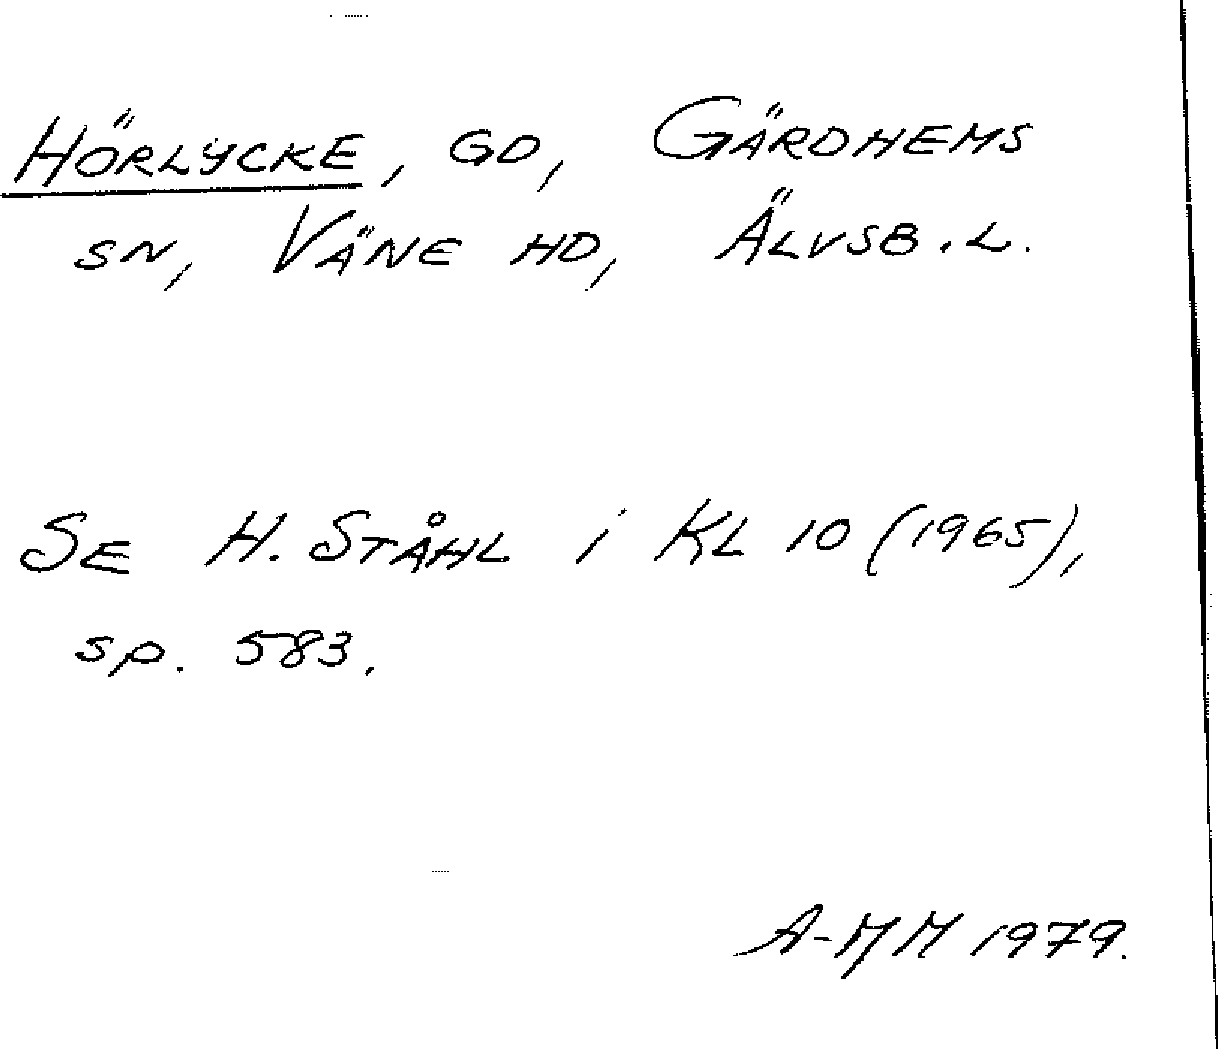 HÖRLYCKE, GD, GÄRDHEMS
SN, VÄNE HD, ÄLVSB. L.
SE H. STÅHL i KL 10 (1965),
sp. 583.
A-MM 1979.